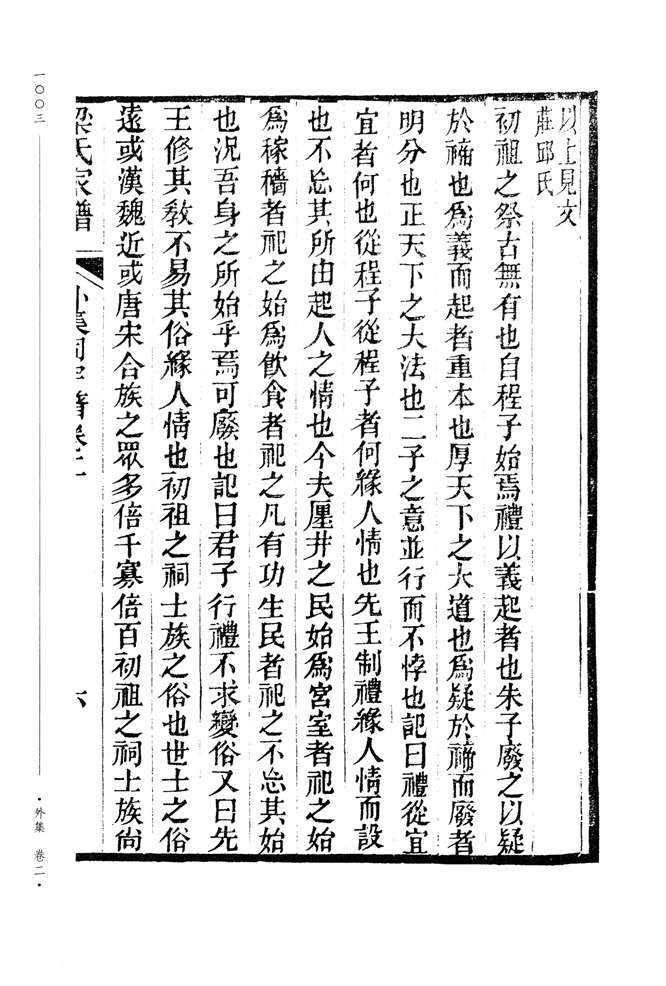 以上見文
莊邱氏
初祖之祭古無有也自程子始焉禮以義起者也朱子廢之以疑
於禘也爲義而起者重本也厚天下之大道也爲疑於禘而廢者
明分也正天下之大法也二子之意並行而不悖也記曰禮從宜
宜者何也從程子從程子者何緣人情也先王制禮緣人情而設
也不忘其所由起人之情也今夫廛井之民始爲宮室者祀之始
爲稼穡者祀之始爲飲食者祀之凡有功生民者祀之不忘其始
也況吾身之所始乎焉可廢也記曰君子行禮不求變俗又曰先
王修其敎不易其俗緣人情也初祖之祠士族之俗也世士之俗
遠或漢魏近或唐宋合族之眾多倍千寡倍百初祖之祠士族尙
梁氏家譜
外集 卷二
六
一〇〇三
·外集 卷二·